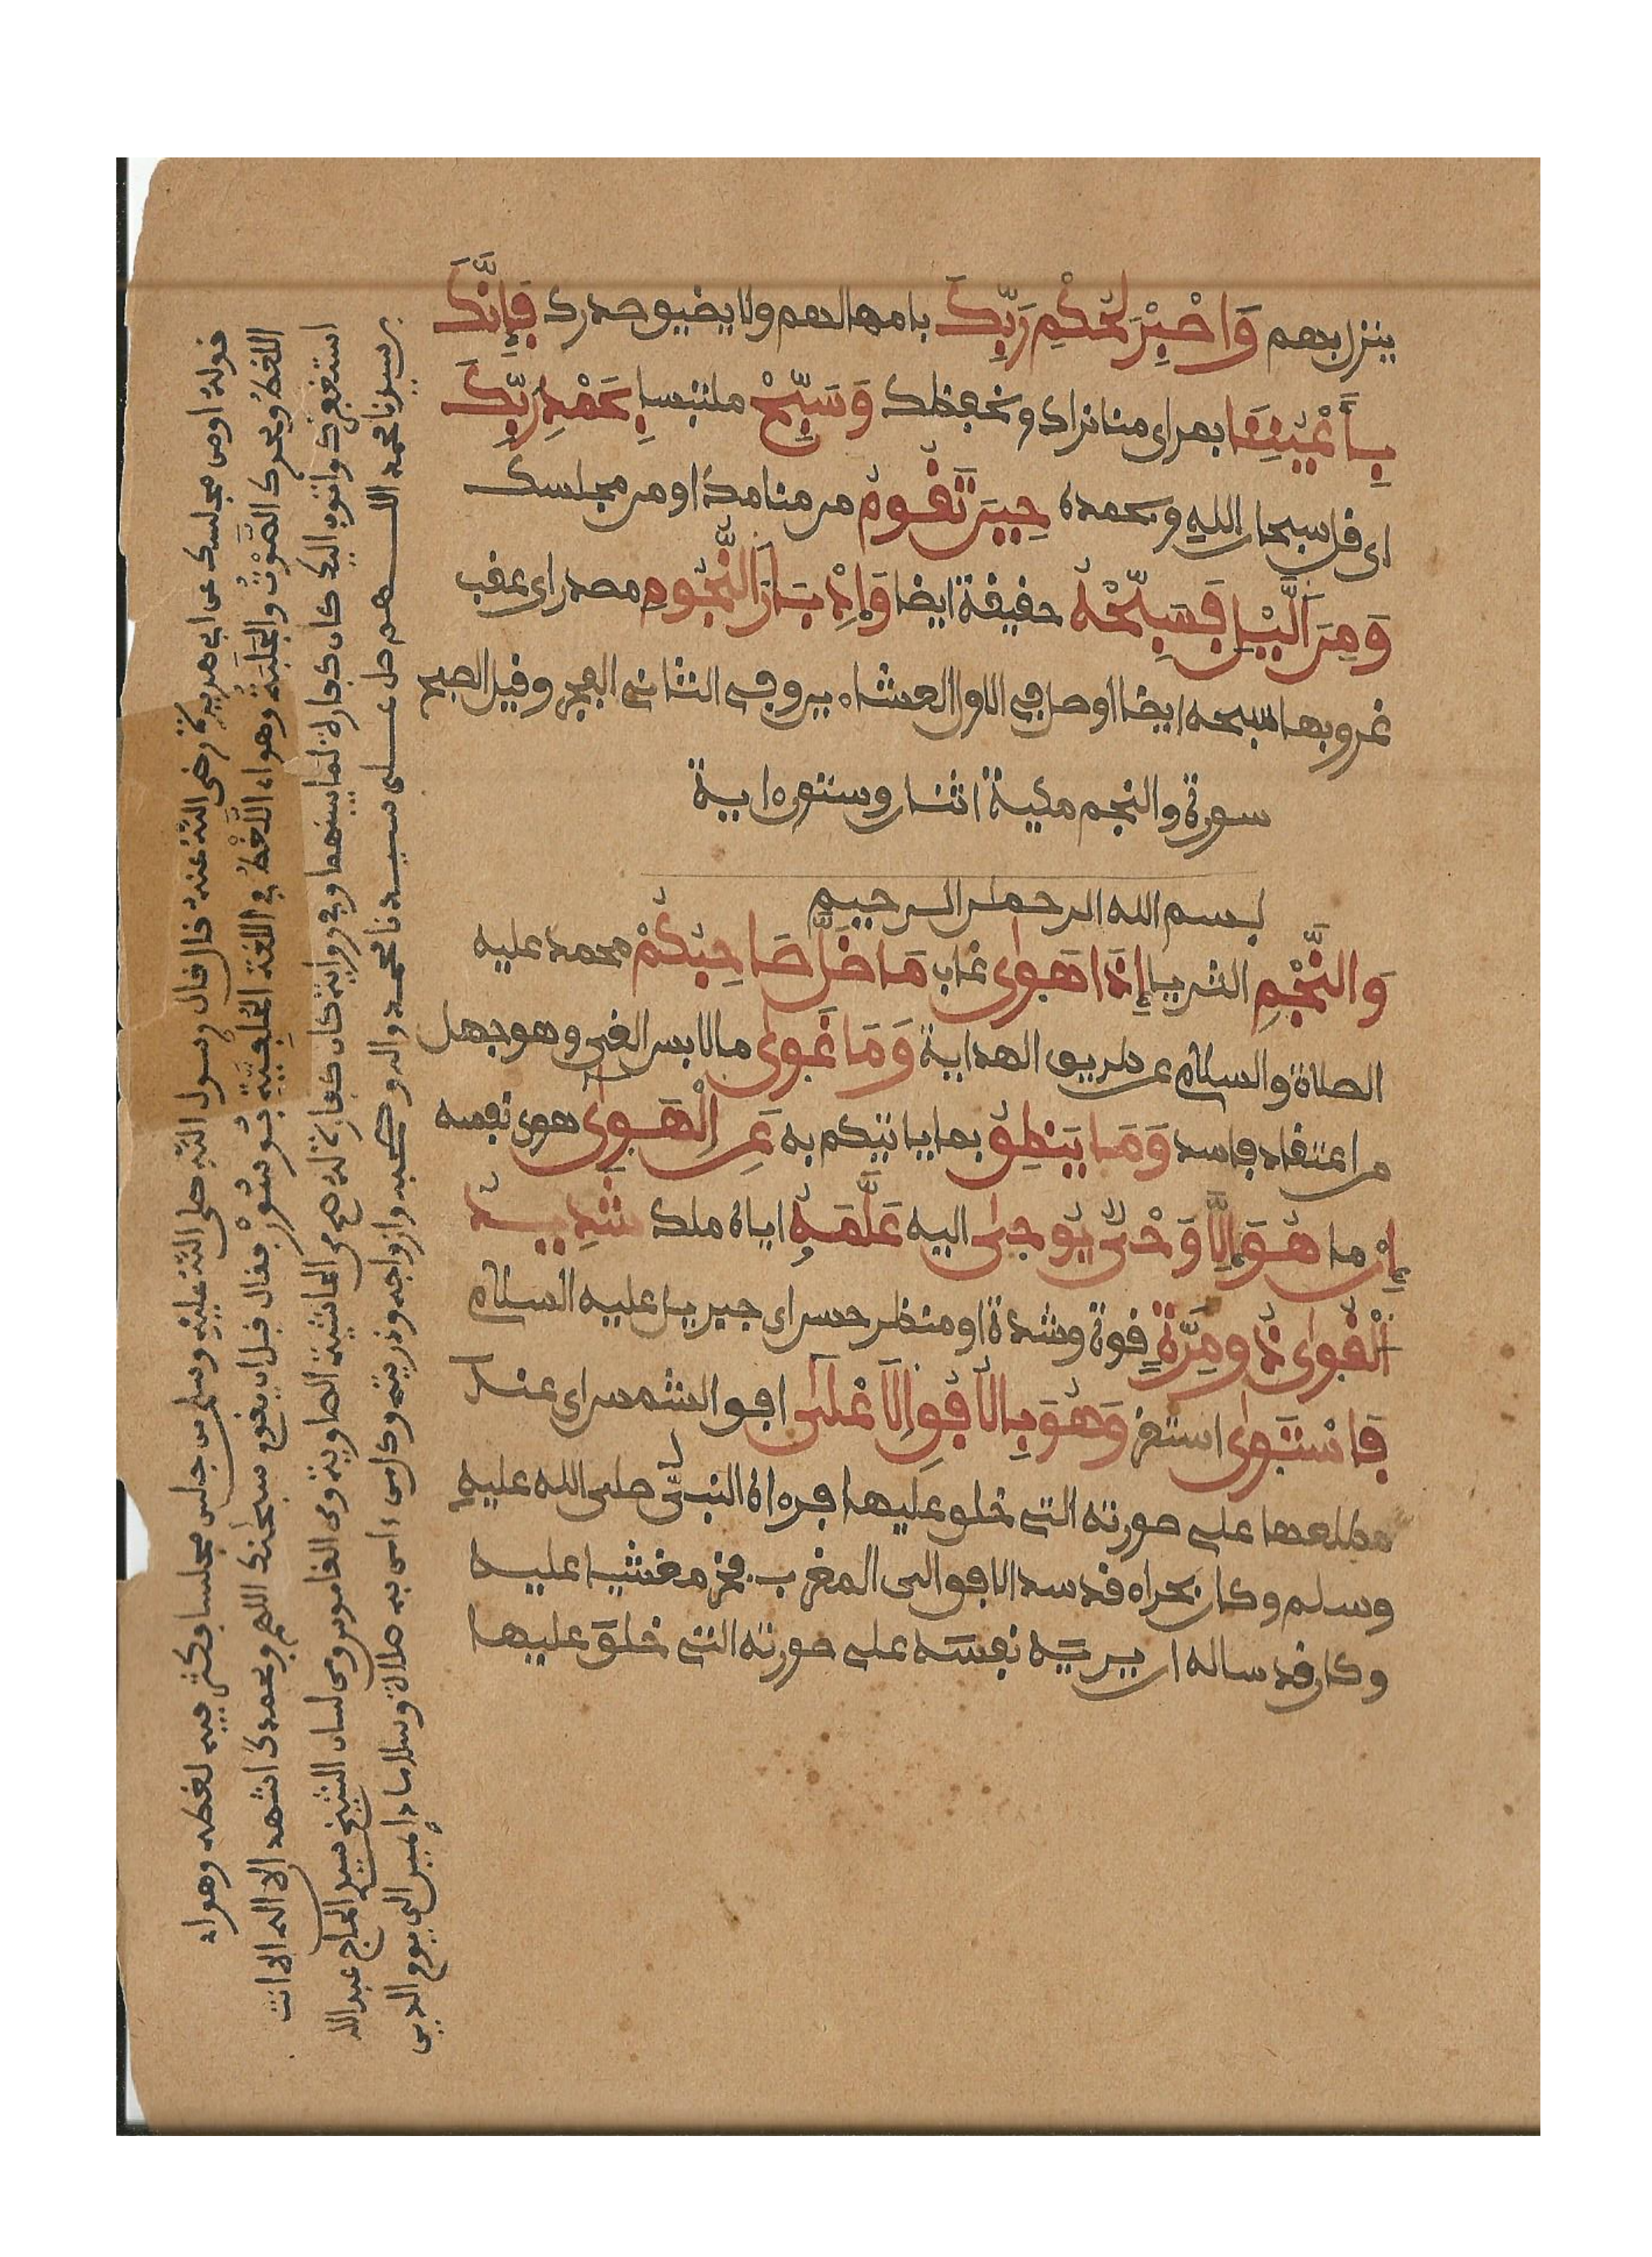 ينزل بهم وَاصْبِرْ لِحُكْمِ رَبِّكَ بامهالهم ولا يضيق صدرك فَإِنَّكَ
بِأَعْيُنِنَا بمراى منا نراك ونحفظك وَسَبِّحْ ملتبسا بِحَمْدِ رَبِّكَ
اى قل سبحان الله وبحمده حِينَ تَقُومُ من منامك او من مجلسك
وَمِنَ الَّيْلِ فَسَبِّحْهُ حقيقة ايضا وَإِدْبَارَ النُّجُومِ مصدر اى عقب
غروبها سبحه ايضا او صل في الاول العشاءين وفى الثانى الفجر وقيل الصبح
سورة والنجم مكية اثنان وستون اية
بسم الله الرحمن الرحيم
وَالنَّجْمِ الثريا إِذَا هَوَى غاب مَا ضَلَّ صَاحِبُكُمْ محمد عليه
الصلاة والسلام عن طريق الهداية وَمَا غَوَى ما لابس الغى وهو جهل
من اعتقاد فاسد وَمَا يَنطِقُ بما ياتيكم به عَنِ الْهَوَى هوى نفسه
إِنْ ما هُوَ إِلَّا وَحْىٌ يُوحَى اليه عَلَّمَهُ اياه ملك شَدِيدُ
الْقُوَى ذُو مِرَّةٍ قوة وشدة او منظر حسن اى جبريل عليه السلام
فَاسْتَوَى استقر وَهُوَ بِالْأُفُقِ الْأَعْلَى افق الشمس اى عند
مطلعها على صورته التى خلق عليها فرءاه النبىء صلى الله عليه
وسلم وكان بحراء قد سد الافق الى المغرب فخر مغشيا عليه
وكان قد ساله ان يريه نفسه على صورته التى خلق عليها
قوله او من مجلسك عن ابي هريرة رضي الله عنه قال قال رسول الله صلى الله عليه وسلم من جلس مجلسا وكثر فيه لغطه وهو اه
اللغط ويحرك الصَّوْتُ والجَلَبَةُ وهو اه اللَّغْطُ في اللغة بقوسُور فقال قبل ان يقوم سبحانك اللهم وبحمدك اشهد الا اله الا انت
استغفرك واتوب اليك كان كفارة لما بينهما وفي رواية كان كفارة له صح من الحاشية الصاوية ومن القاموس ومن لسان الشيخ سير الحاج عبد الله
بن سيرنا محمد اللهم صل على سيدنا محمد واله وصحبه وازواجه وذريته وكل من ءامن به صلاة وسلاما دايمين الى يوم الدين